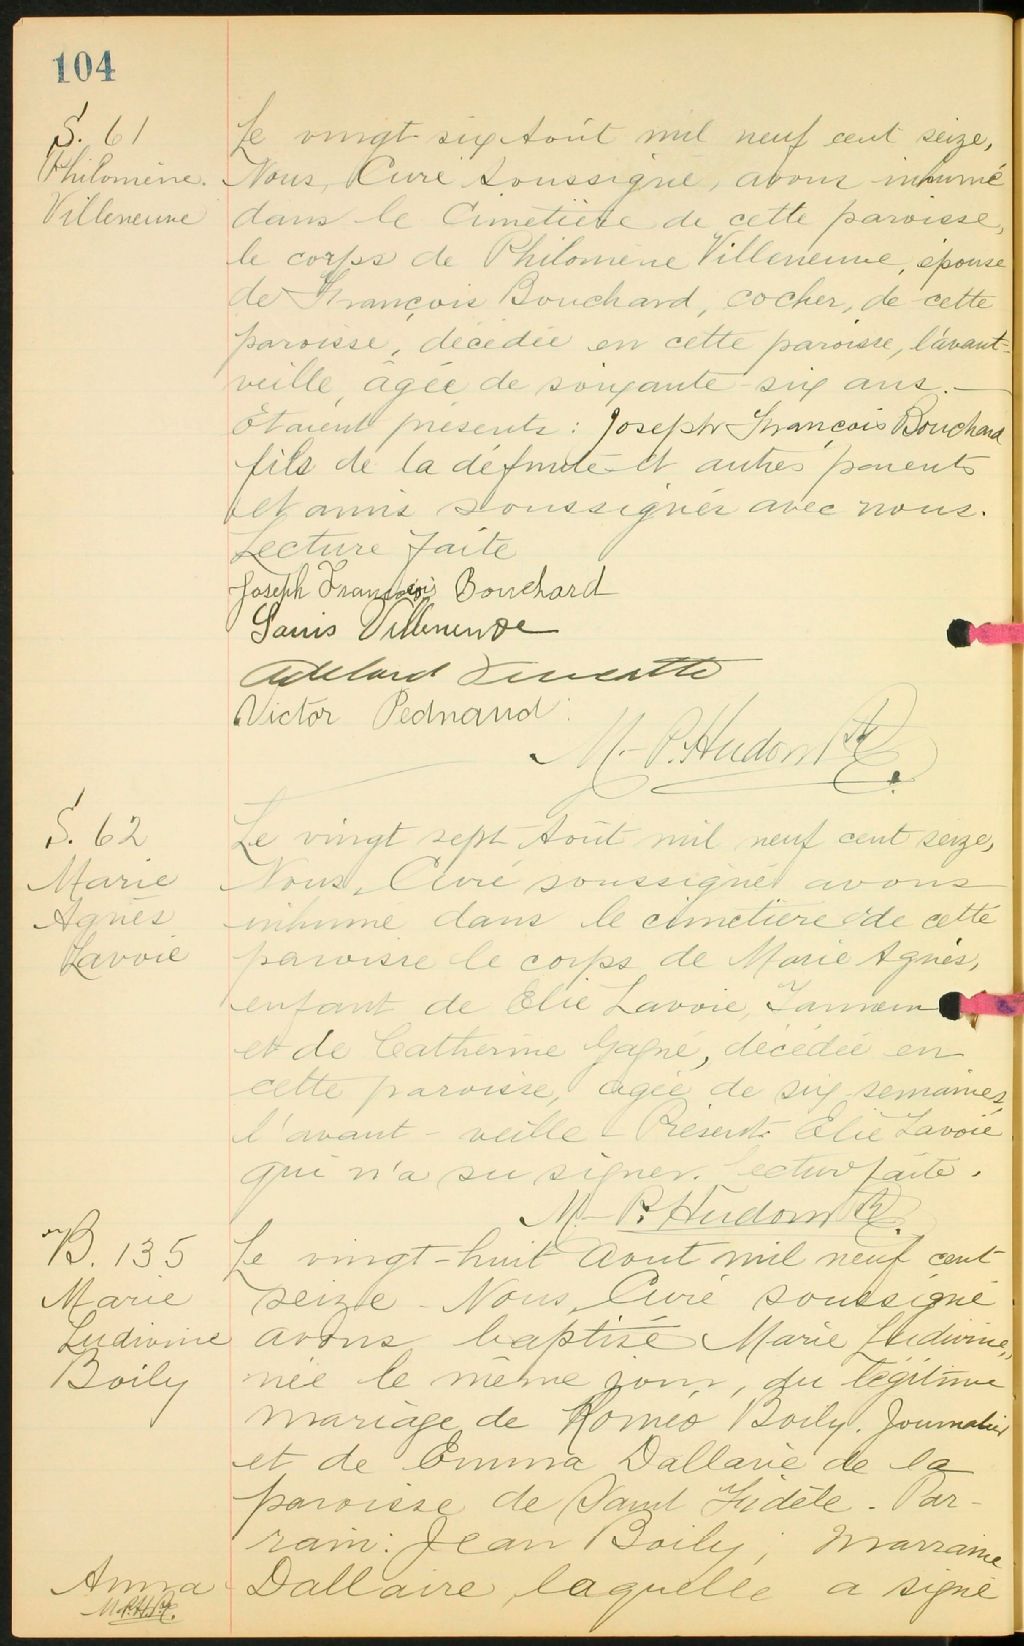 104
S. 61
Philomène
Villeneuve
Le vingt-six Août mil neuf cent seize,
Nous, Curé soussigné, avons inhumé
dans le Cimetière de cette paroisse,
le corps de Philomène Villeneuve, épouse
de François Bouchard, cocher, de cette
paroisse, décédée en cette paroisse, l'avant-
veille, âgée de soixante-six ans. —
Étaient présents : Joseph François Bouchard
fils de la défunte et autres parents
et amis soussignés avec nous.
Lecture faite
Joseph François Bouchard
Louis Villeneuve
Adelard
Victor Pednaud
M.-P. Hudon Ptr
S. 62
Marie
Agnès
Lavoie
Le vingt sept Août mil neuf cent seize,
Nous, Curé soussigné avons
inhumé dans le cimetière de cette
paroisse le corps de Marie Agnès,
enfant de Elie Lavoie,
et de Catherine Gagné, décédée en
cette paroisse, agée de six semaines,
l'avant-veille - Présent: Elie Lavoie
qui n'a su signer. Lecture faite.
M.-P. Hudon Ptr
B. 135
Marie
Ludivine
Boily
Le vingt-huit Aout mil neuf cent
seize - Nous, Curé soussigné
avons baptisé Marie Ludivine,
née le même jour, du légitime
mariage de Roméo Boily, Journalier
et de Emma Dallaire de la
paroisse de Saint Fidèle - Par-
rain: Jean Boily, marraine
Anna
M.P.H. Ptr.
Dallaire laquelle a signé